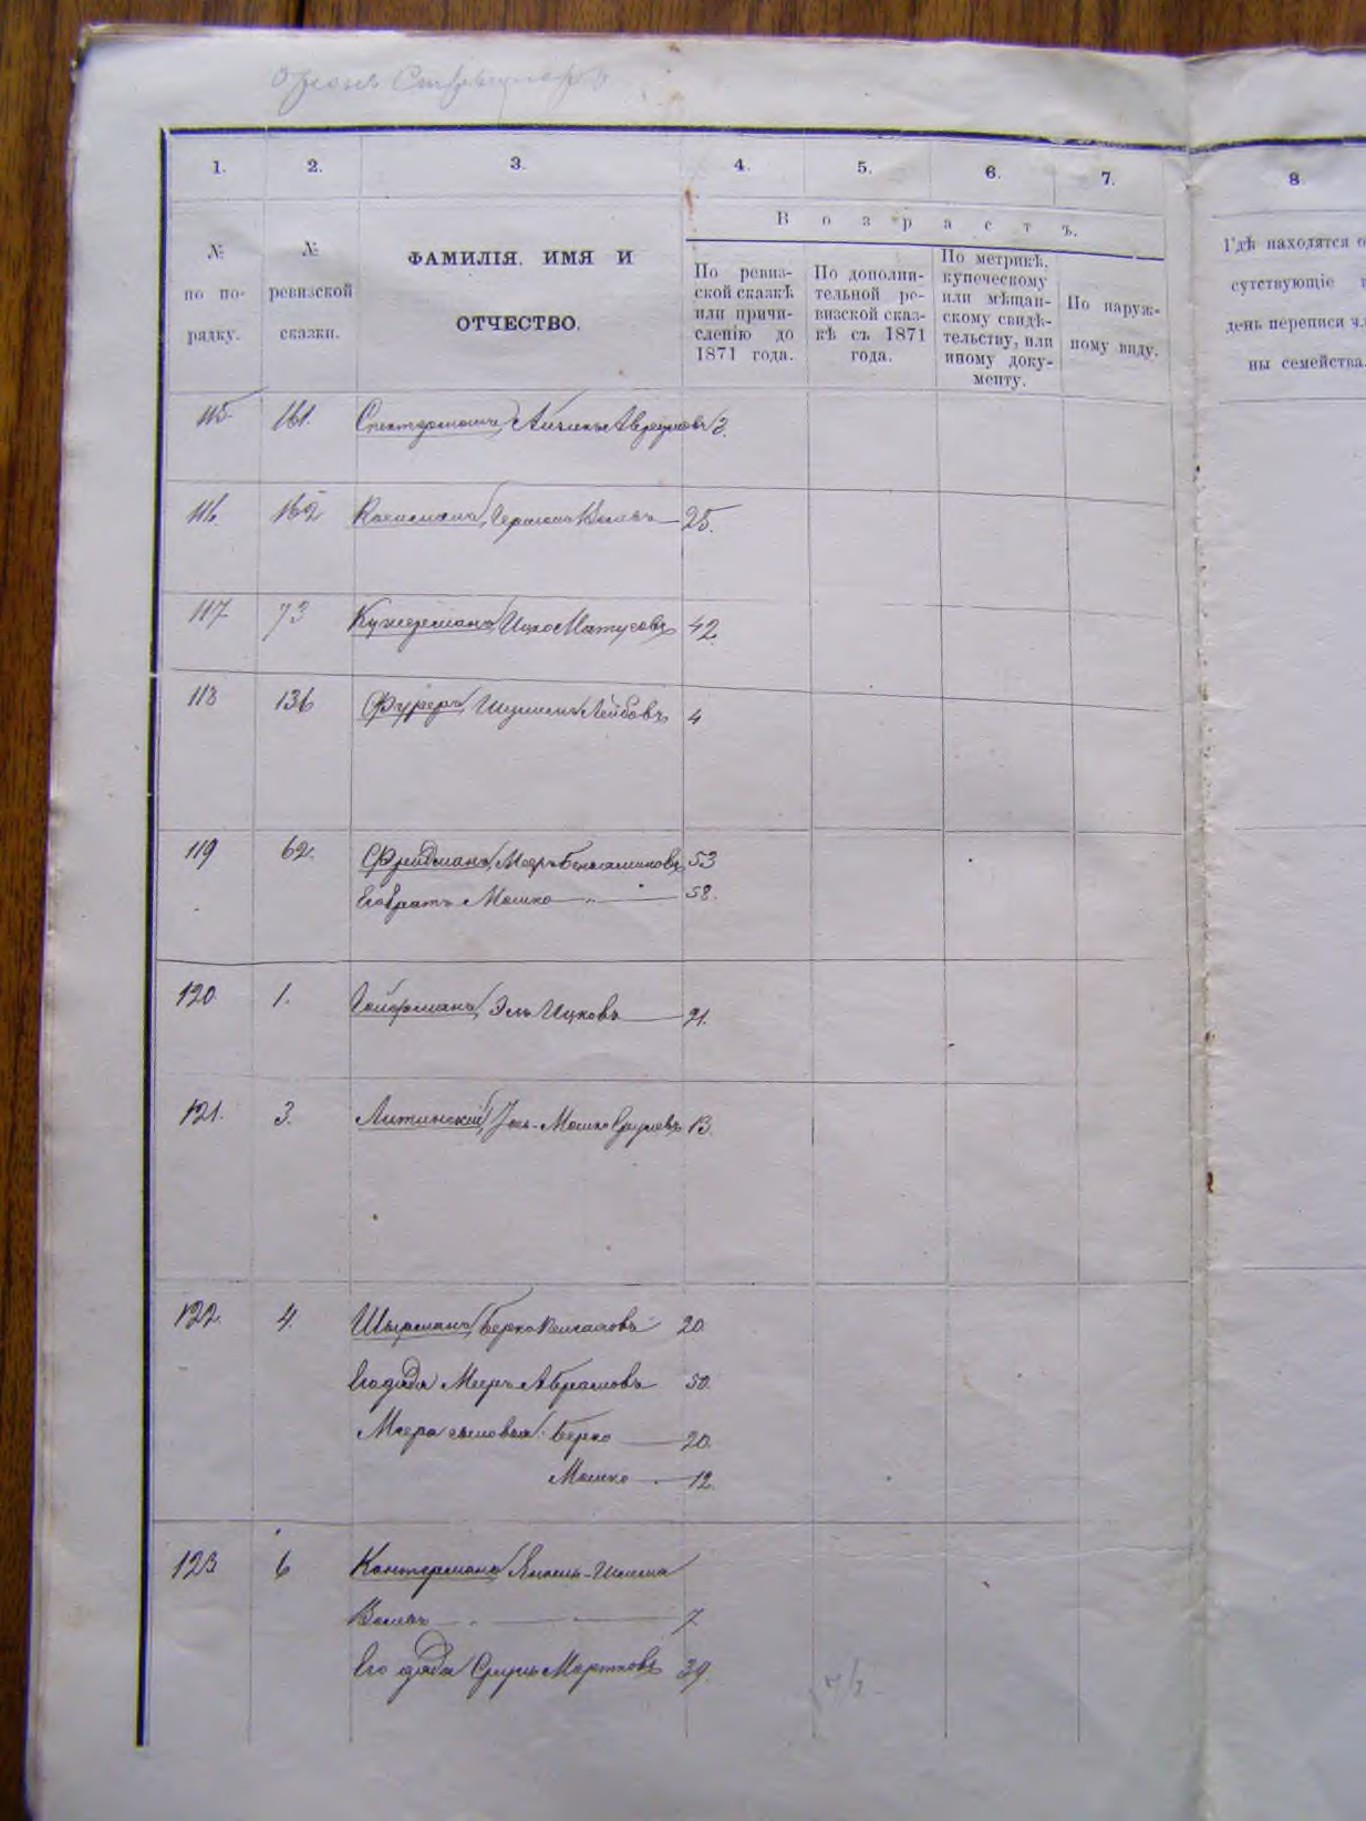 1. 2. 3. 4. 5. 6. 7. 8
№ по порядку.
№ ревизской сказки.
ФАМИЛІЯ, ИМЯ И
ОТЧЕСТВО.
Возрастъ.
По ревиз-
ской сказкѣ
или причи-
сленію до
1871 года.
По дополни-
тельной ре-
визской сказ-
кѣ съ 1871
года.
По метрикѣ,
купеческому
или мѣщан-
скому свидѣ-
тельству, или
иному доку-
менту.
По наруж-
ному виду.
Гдѣ находятся о
сутствующіе
день переписи чл
ны семейства.
115. 161. Айзикъ
116. 162 Волевъ 25.
117 73 Кужерманъ Ицко Матусовъ 42
118 136 Фуреръ Лейбовъ 4
119 62. Фридманъ Мееръ Беньяминовъ 53
Его братъ Мошко — " — 58.
120 1. Гойфманъ Эль Ицковъ 21.
121. 3. Литинскій Іось-Мошко Сруловъ 13.
122. 4. Берко 20
Его дядя Мееръ Абрамовъ 50.
Меера сыновья: Берко 20.
Мошко 12.
123 6 Кантерманъ
Волевъ — " — 7
Его дядя Сруль Мортковъ 39.